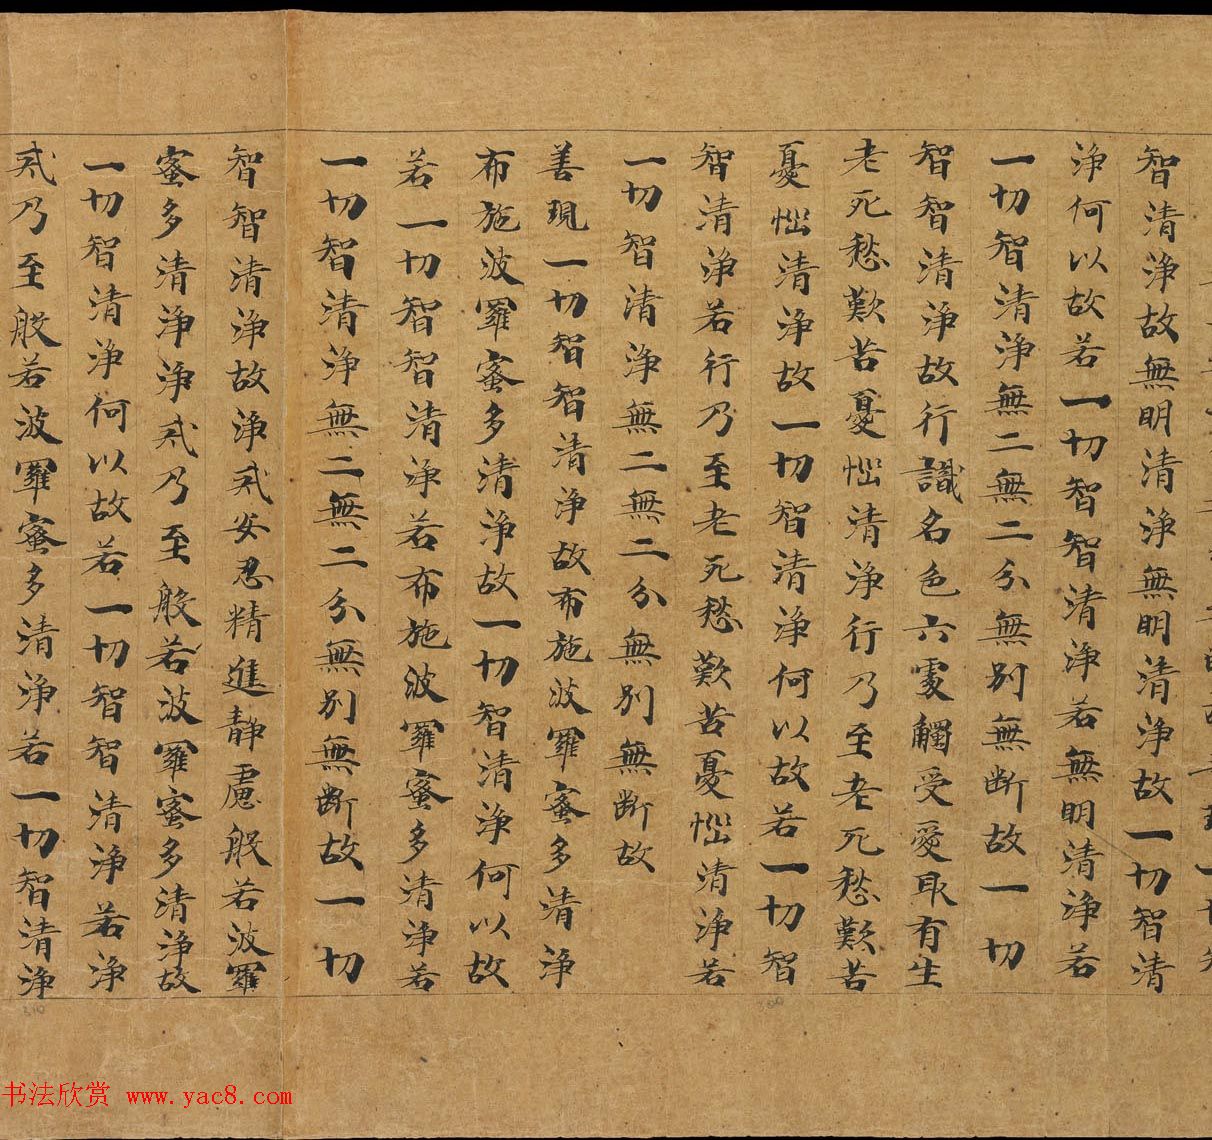 智清淨故無明清淨無明清淨故一切智清
淨何以故若一切智智清淨若無明清淨若
一切智清淨無二無二分無別無断故一切
智智清淨故行識名色六處觸受愛取有生
老死愁歎苦憂惱清淨行乃至老死愁歎苦
憂惱清淨故一切智清淨何以故若一切智
智清淨若行乃至老死愁歎苦憂惱清淨若
一切智清淨無二無二分無別無断故
善現一切智智清淨故布施波羅蜜多清淨
布施波羅蜜多清淨故一切智清淨何以故
若一切智智清淨若布施波羅蜜多清淨若
一切智清淨無二無二分無別無断故一切
智智清淨故淨戒安忍精進靜慮般若波羅
蜜多清淨淨戒乃至般若波羅蜜多清淨故
一切智清淨何以故若一切智智清淨若淨
戒乃至般若波羅蜜多清淨若一切智清淨
书法欣赏 www.yac8.com